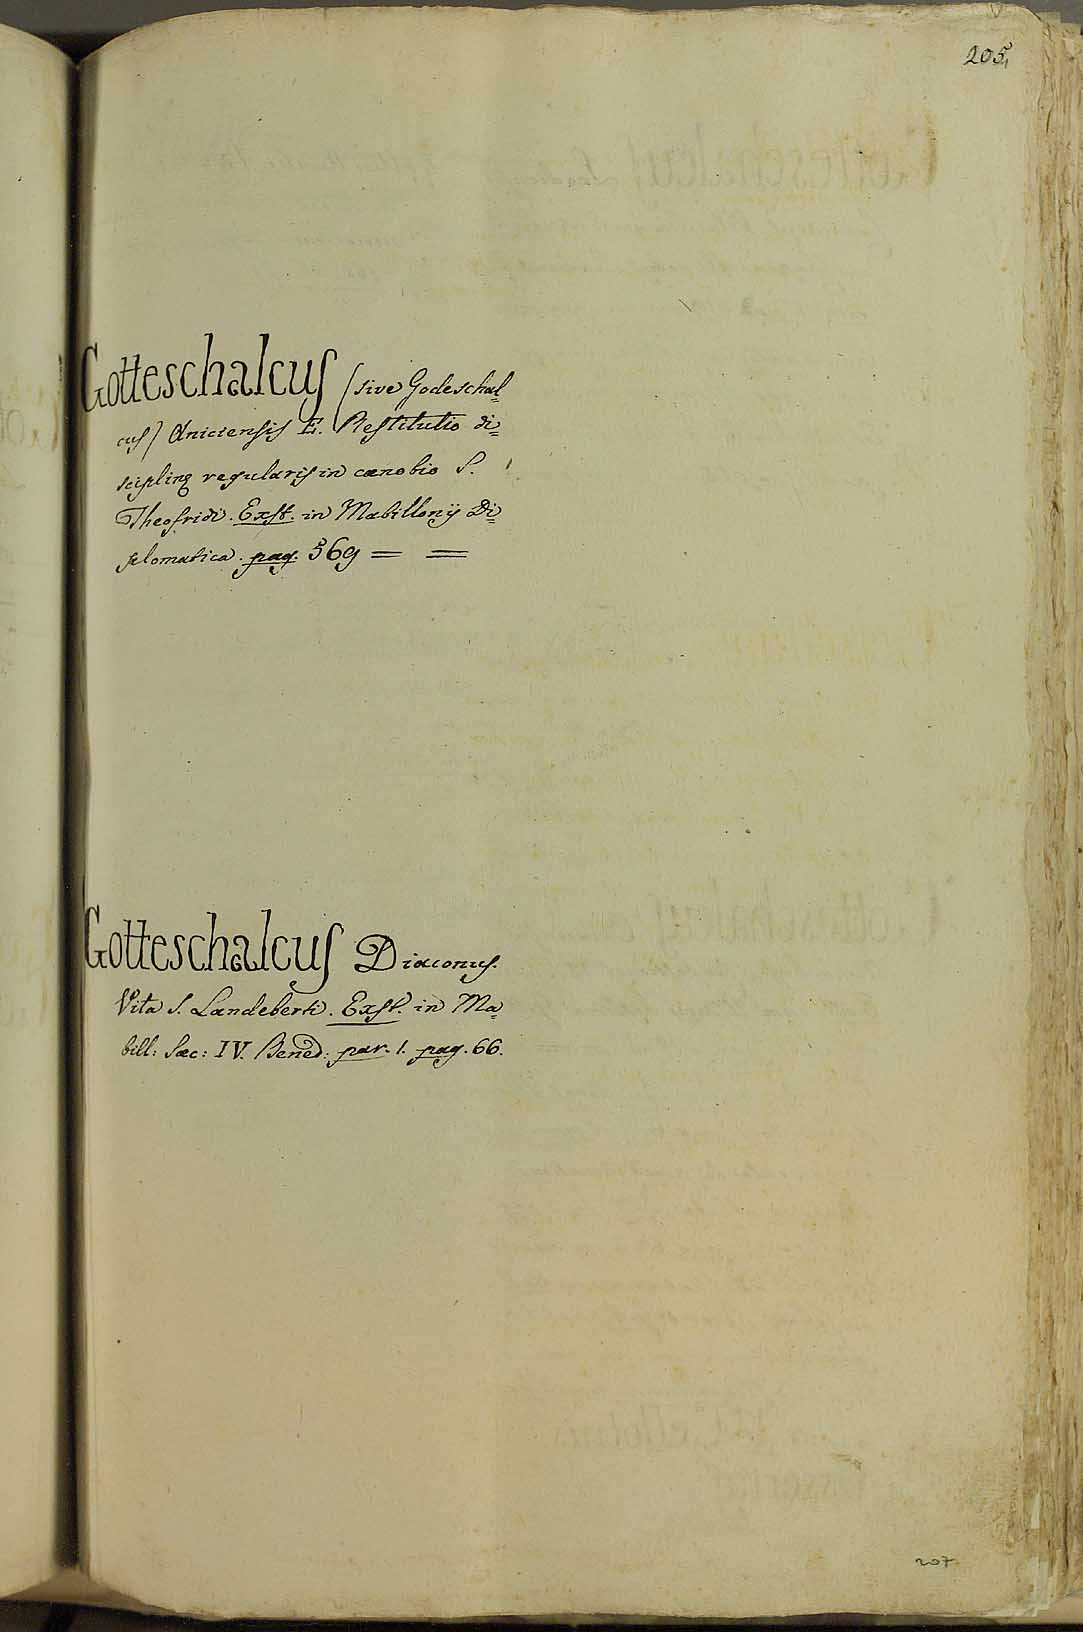 205,
Gotteschalcus (sive Godeschal=
cus) Aniciensis E. Restitutio di=
sciplinę regularis in cœnobio S.
Theofridi. Exst. in Mabillonij Di=
plomatica. pag. 569 = =
Gotteschalcus Diaconus.
Vita S. Landeberti. Exst. in Ma=
bill: Sæc: IV. Bened: par. 1. pag. 66.
207